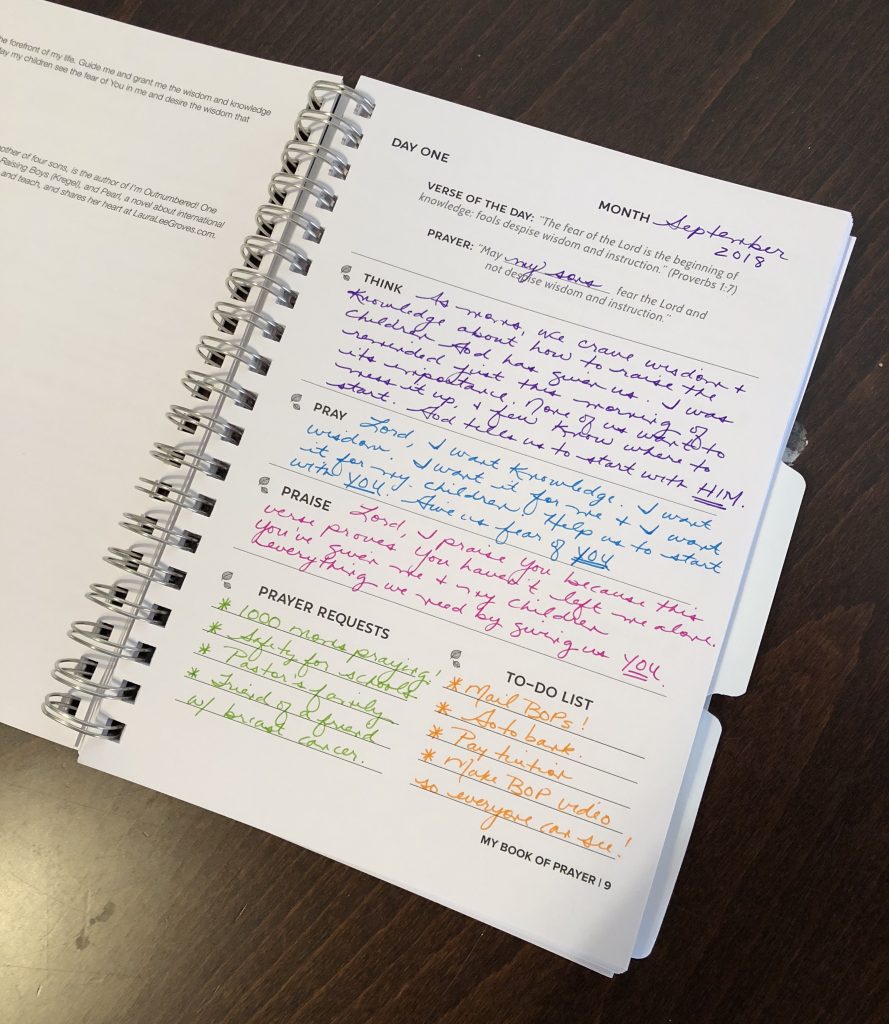 he forefront of my life. Guide me and grant me the wisdom and knowledge
ay my children see the fear of You in me and desire the wisdom that
other of four sons, is the author of I'm Outnumbered! One
Raising Boys (Kregel), and Pearl, a novel about international
and teach, and shares her heart at LauraLeeGroves.com.
DAY ONE
MONTH September
2018
VERSE OF THE DAY: "The fear of the Lord is the beginning of
knowledge; fools despise wisdom and instruction." (Proverbs 1:7)
PRAYER: "May my sons fear the Lord and
not despise wisdom and instruction."
THINK As moms, we crave wisdom +
knowledge about how to raise the
children God has given us. I was
reminded just this morning of
its importance. None of us want to
mess it up, + few know where to
start. God tells us to start with HIM.
PRAY Lord, I want knowledge. I want
wisdom. I want it for me + I want
it for my children. Help us to start
with YOU. Give us fear of YOU
PRAISE Lord, I praise you because this
verse proves you haven't left me alone.
You've given me + my children
everything we need by giving us YOU.
PRAYER REQUESTS
* 1000 moms praying!
* Safety for schools
* Pastor's family
* Friend of a friend
w/ breast cancer.
TO-DO LIST
* Mail BOPs!
* Go to bank.
* Pay tuition
* Make BOP video
so everyone can see!
MY BOOK OF PRAYER | 9